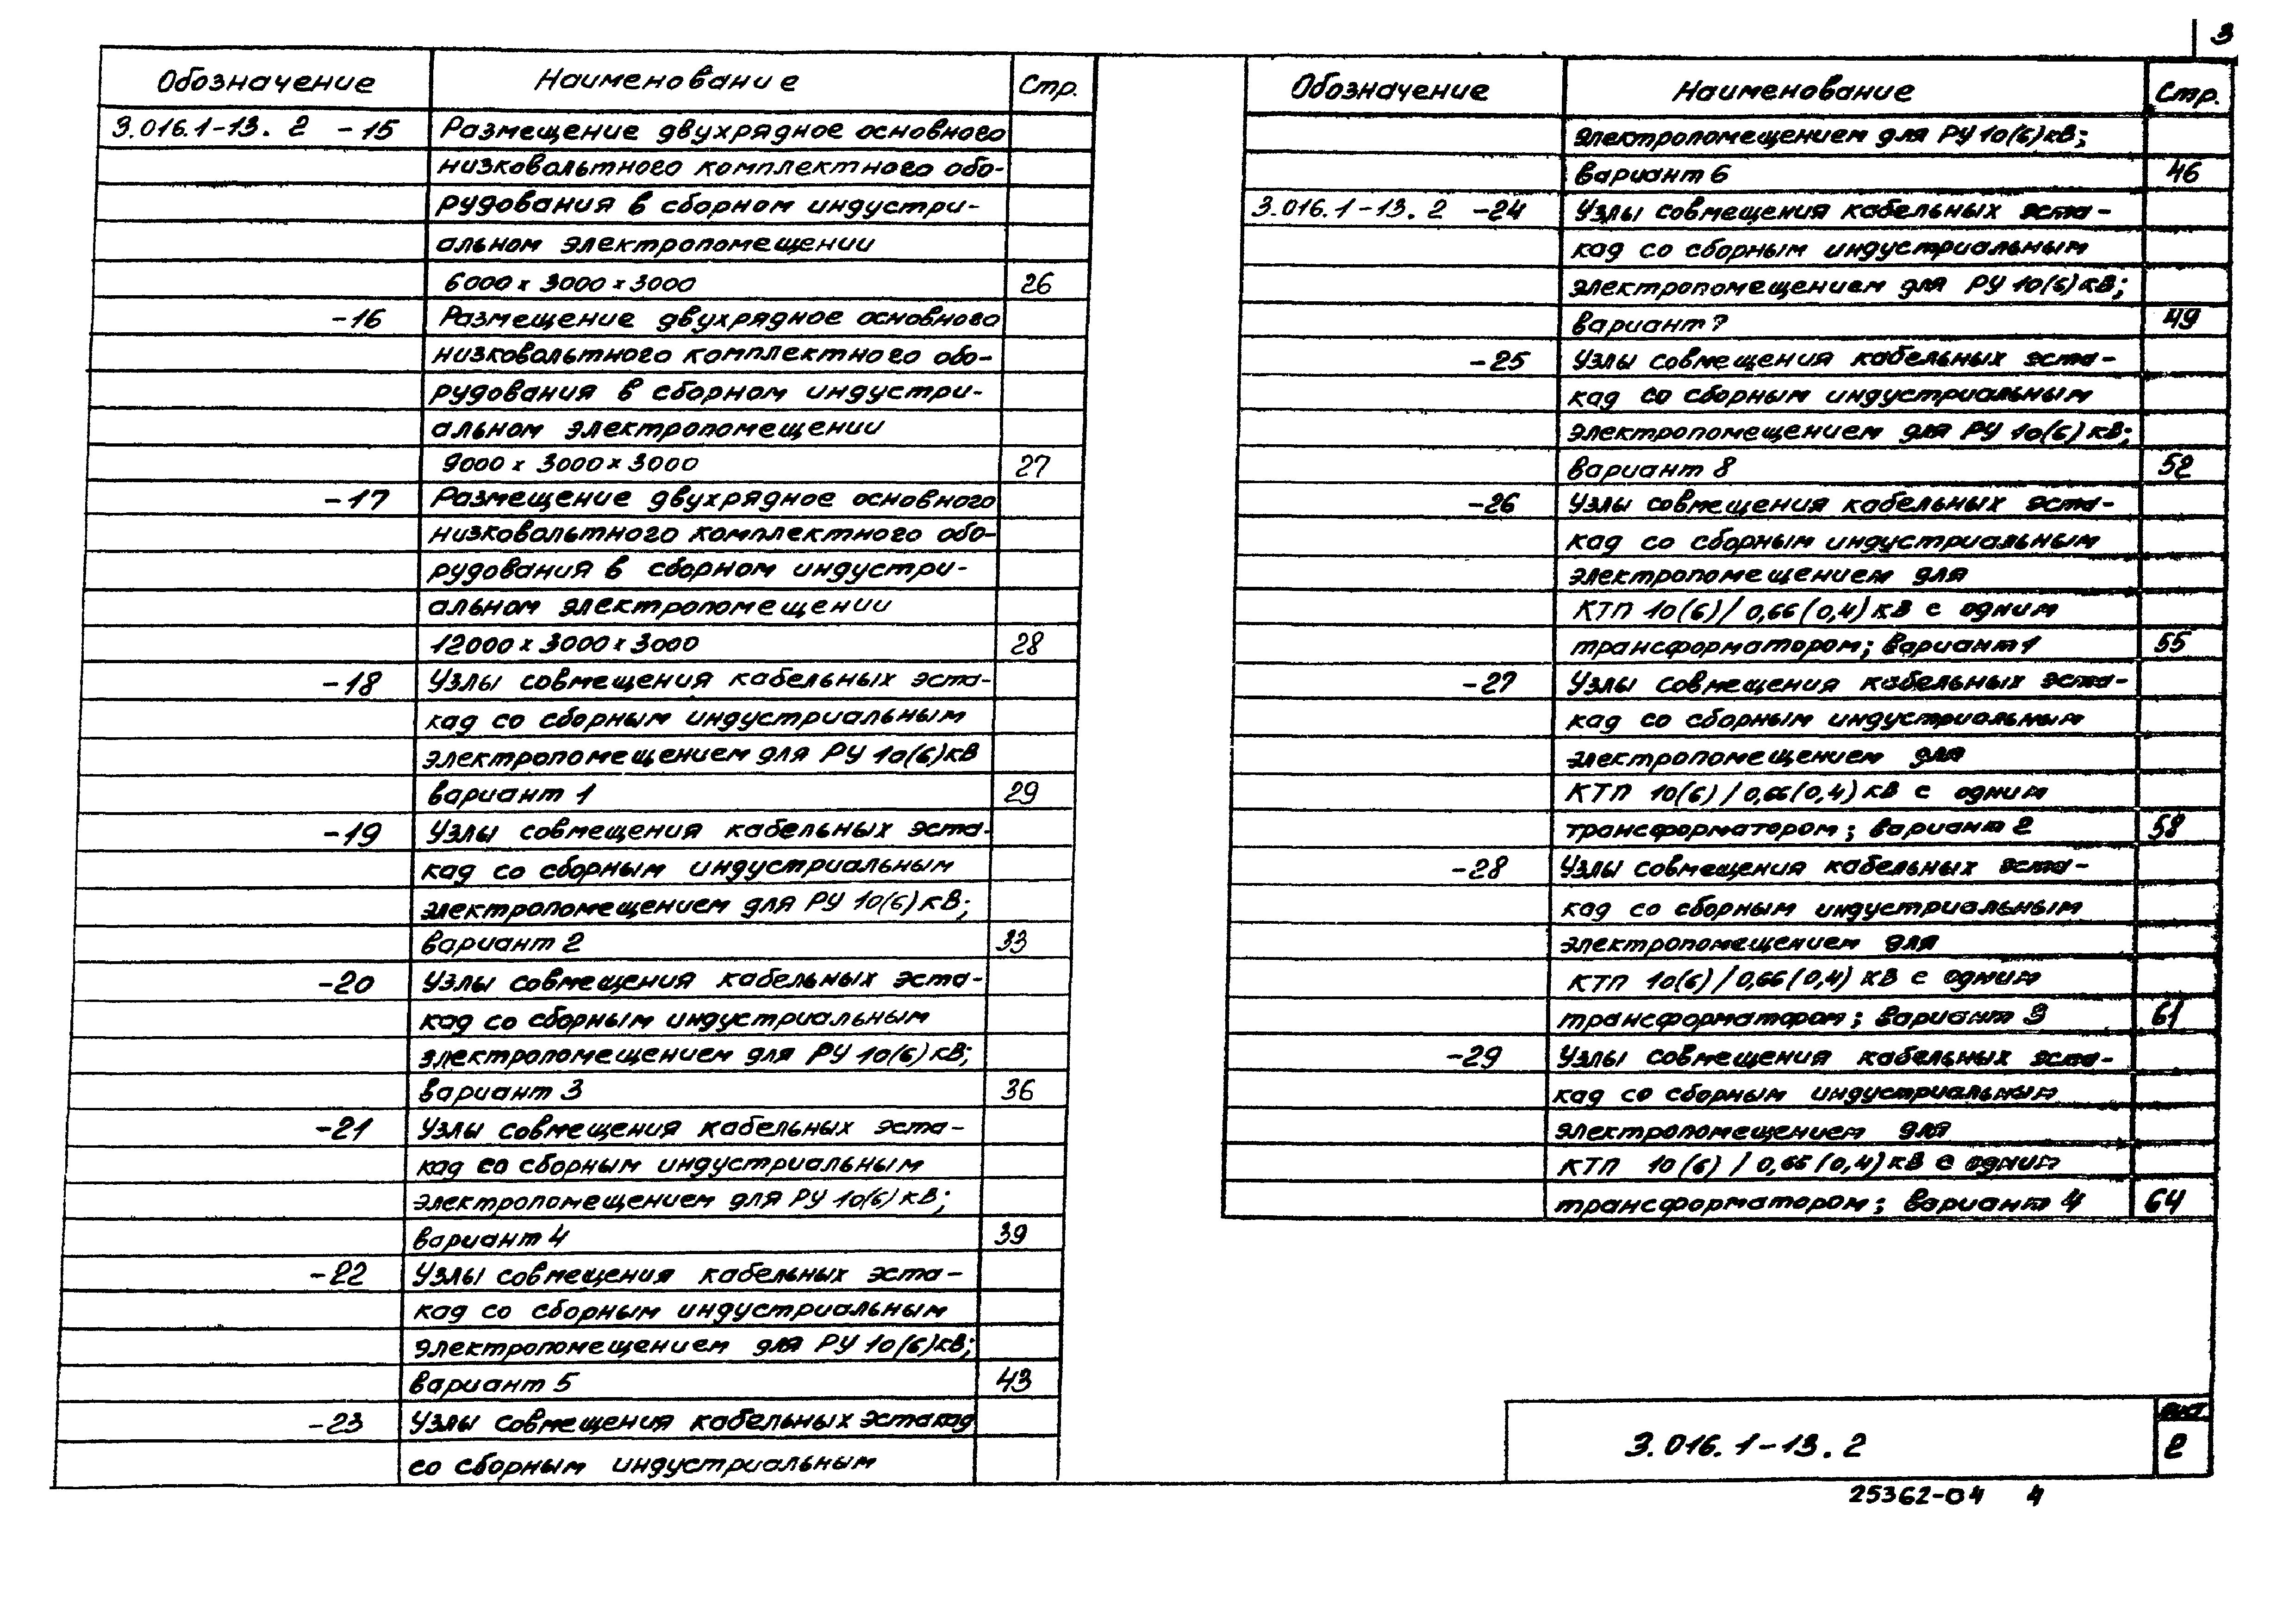 3
Обозначение Наименование Стр.
3.016.1-13. 2 -15 Размещение двухрядное основного
низковольтного комплектного обо-
рудования в сборном индустри-
альном электропомещении
6000 x 3000 x 3000 26
-16 Размещение двухрядное основного
низковольтного комплектного обо-
рудования в сборном индустри-
альном электропомещении
9000 x 3000 x 3000 27
-17 Размещение двухрядное основного
низковольтного комплектного обо-
рудования в сборном индустри-
альном электропомещении
12000 x 3000 x 3000 28
-18 Узлы совмещения кабельных эста-
кад со сборным индустриальным
электропомещением для РУ 10(6)кВ
вариант 1 29
-19 Узлы совмещения кабельных эста-
кад со сборным индустриальным
электропомещением для РУ 10(6)кВ;
вариант 2 33
-20 Узлы совмещения кабельных эста-
кад со сборным индустриальным
электропомещением для РУ 10(6)кВ;
вариант 3 36
-21 Узлы совмещения кабельных эста-
кад со сборным индустриальным
электропомещением для РУ 10(6)кВ;
вариант 4 39
-22 Узлы совмещения кабельных эста-
кад со сборным индустриальным
электропомещением для РУ 10(6)кВ;
вариант 5 43
-23 Узлы совмещения кабельных эстакад
со сборным индустриальным
Обозначение Наименование Стр.
электропомещением для РУ 10(6)кВ;
вариант 6 46
3.016.1-13. 2 -24 Узлы совмещения кабельных эста-
кад со сборным индустриальным
электропомещением для РУ 10(6)кВ;
вариант 7 49
-25 Узлы совмещения кабельных эста-
кад со сборным индустриальным
электропомещением для РУ 10(6)кВ;
вариант 8 52
-26 Узлы совмещения кабельных эста-
кад со сборным индустриальным
электропомещением для
КТП 10(6)/0,66(0,4)кВ с одним
трансформатором; вариант 1 55
-27 Узлы совмещения кабельных эста-
кад со сборным индустриальным
электропомещением для
КТП 10(6)/0,66(0,4)кВ с одним
трансформатором; вариант 2 58
-28 Узлы совмещения кабельных эста-
кад со сборным индустриальным
электропомещением для
КТП 10(6)/0,66(0,4) кВ с одним
трансформатором; вариант 3 61
-29 Узлы совмещения кабельных эста-
кад со сборным индустриальным
электропомещением для
КТП 10(6)/0,66(0,4)кВ с одним
трансформатором; вариант 4 64
3.016.1-13.2
Лист
2
25362-04 4